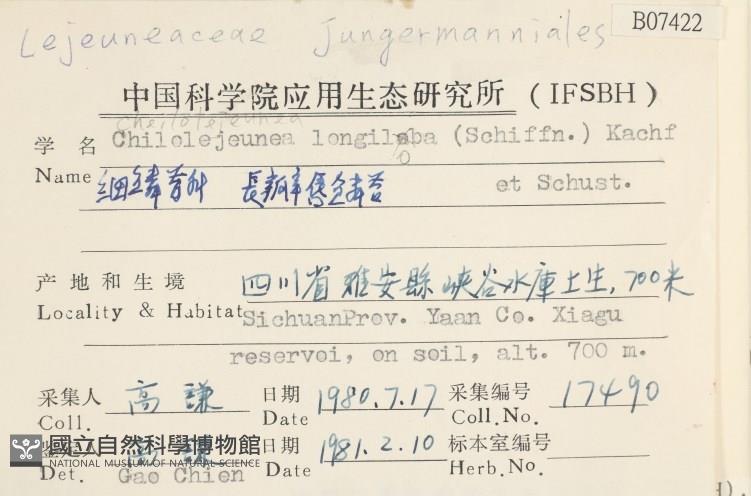 Lejeuneaceae Jungermanniales
B07422
中国科学院应用生态研究所 (IFSBH)
Cheilolejeunea
学名 Chilolejeunea longiloba (Schiffn.) Kachf
Name 細鱗苔科 長瓣唇鱗苔 et Schust.
产地和生境 四川省雅安縣峽谷水庫土生, 700米
Locality & Habitat SichuanProv. Yaan Co. Xiagu
reservoi, on soil, alt. 700 m.
采集人 高謙 日期 1980.7.17 采集编号 17490
Coll. Date Coll.No.
鉴定人 高謙 日期 1981.2.10 标本室编号
Det. Gao Chien Date Herb.No.
國立自然科學博物館
NATIONAL MUSEUM OF NATURAL SCIENCE